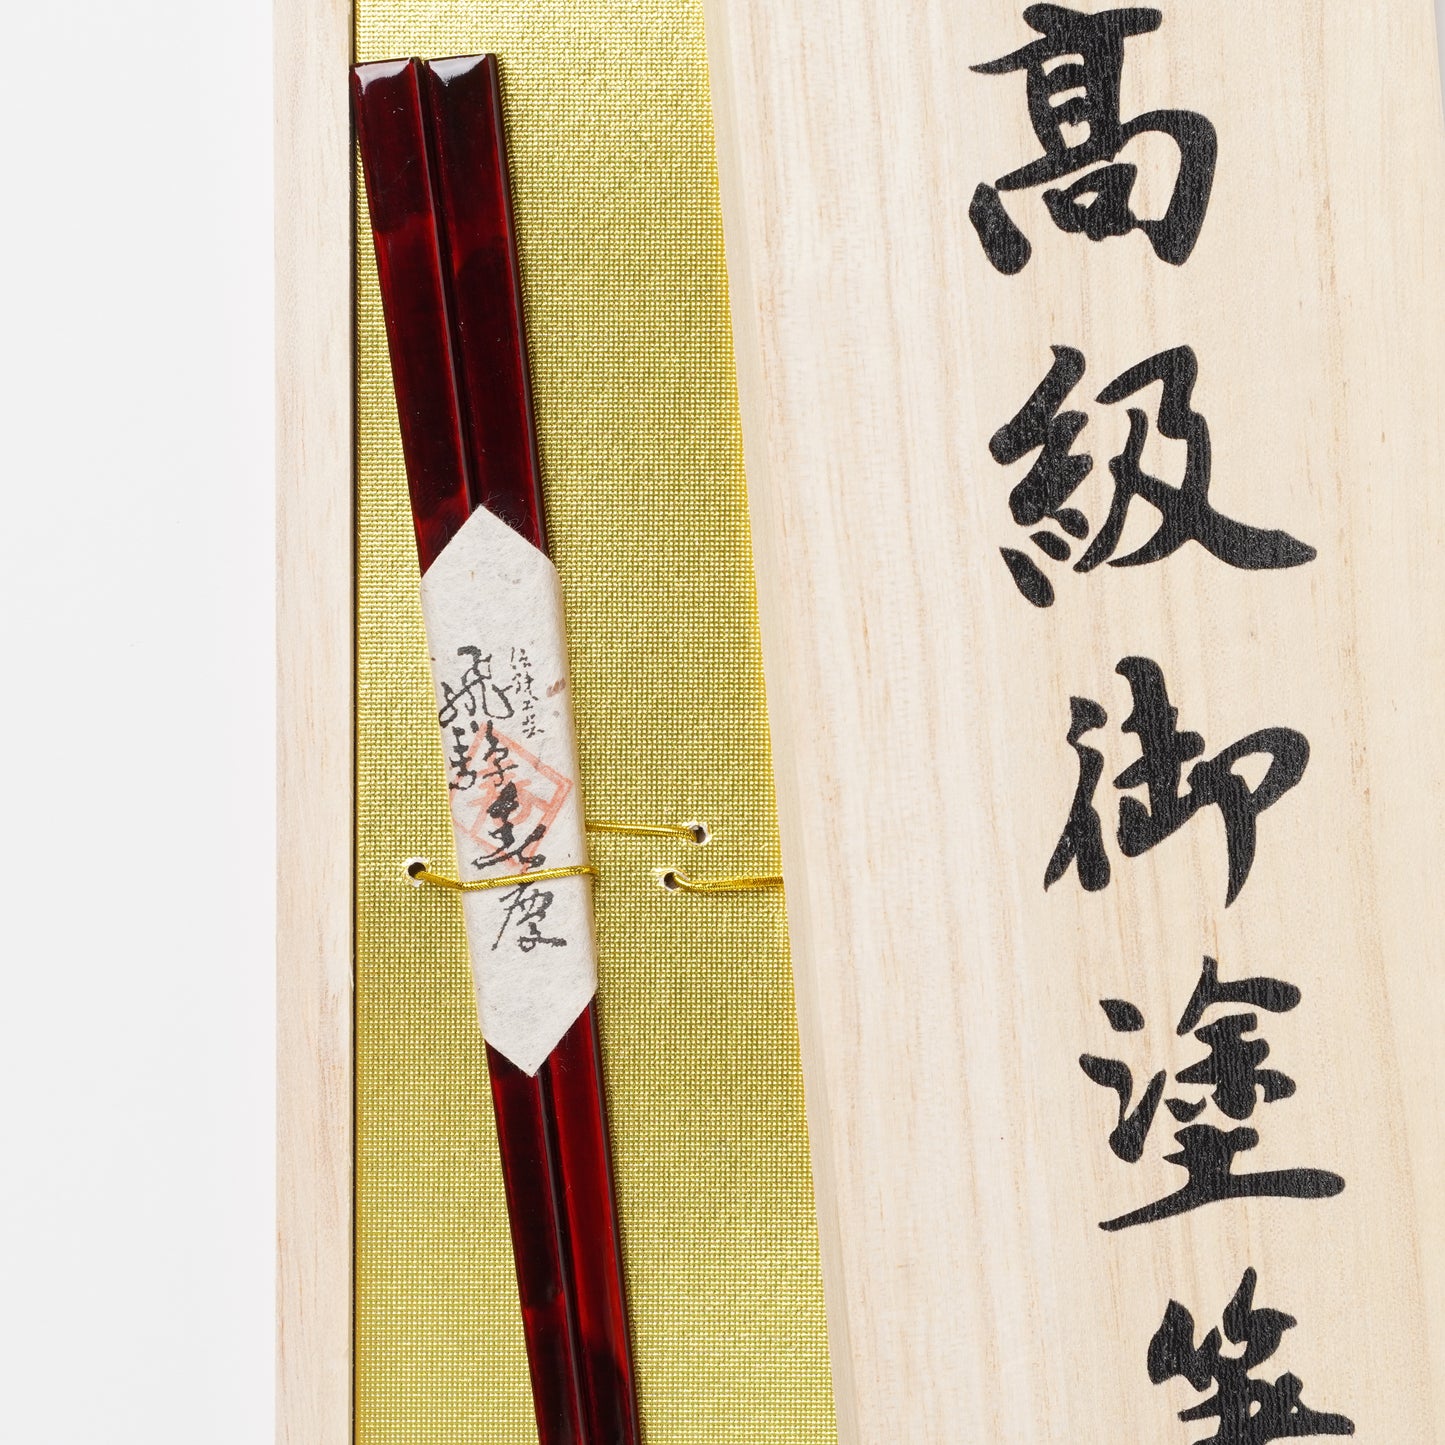 高級御塗箸
伝統工芸
飛騨春慶
春